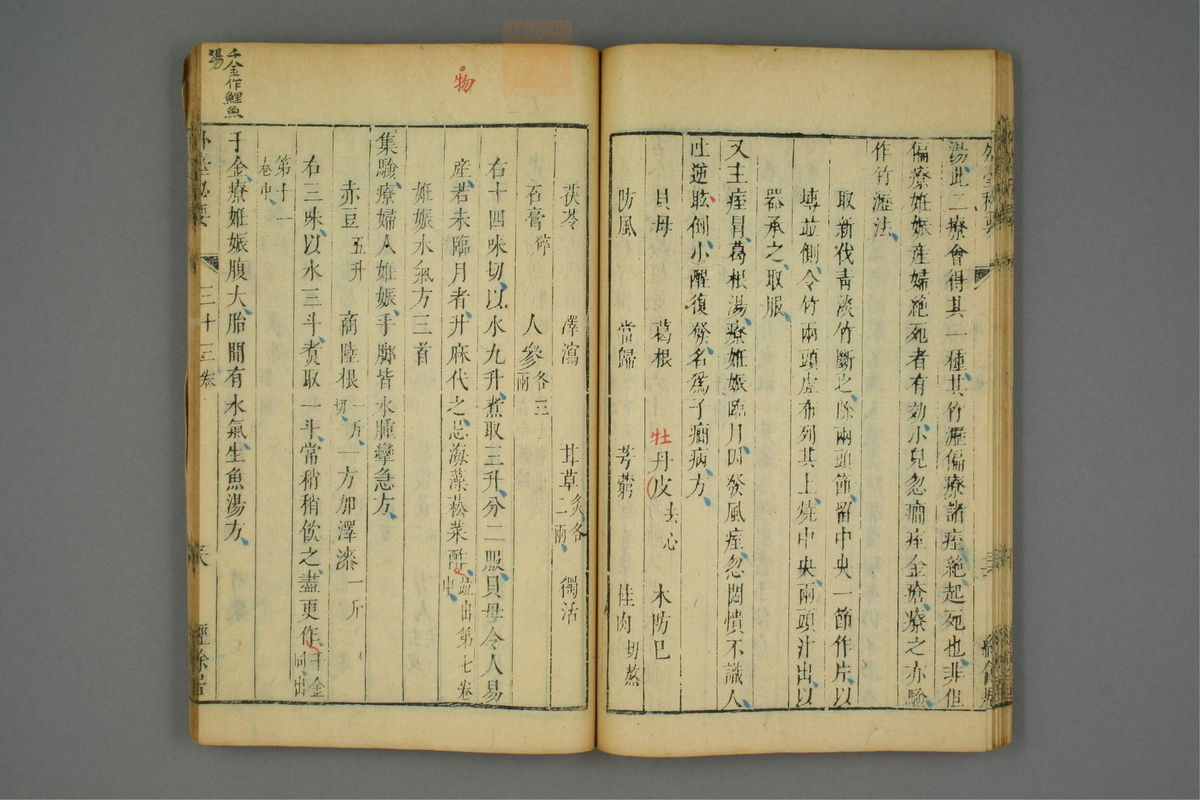 湯此二療會得其一種其竹瀝偏療諸痓絶起死也非但
偏療妊娠産婦絶死者有効小兒忽癎痓金瘡療之亦驗
作竹瀝法
取新伐青淡竹斷之除兩頭節留中央一節作片以
塼並側令竹兩頭虛布列其上燒中央兩頭汁出以
器承之取服
又主痓冒葛根湯療妊娠臨月因發風痓忽悶憒不識人
吐逆眩倒小醒復發名爲子癎病方
貝母 葛根 牡丹皮去心 木防已
防風 當歸 芎藭 桂肉切熬
茯苓 澤瀉 甘草炙各二兩 獨活
石膏碎 人參各三兩
右十四味切以水九升煮取三升分二服貝母令人易
産若未臨月者升麻代之忌海藻菘菜酢並出第七卷中
妊娠水氣方三首
集驗療婦人妊娠手腳皆水腫攣急方
赤豆五升 商陸根一斤切 一方加澤漆一斤
右三味以水三斗煮取一斗常稍稍飲之盡更作千金同出
第十一卷中
千金療妊娠腹大胎間有水氣生魚湯方
外臺秘要 三十三卷 經餘居
千金作鯉魚
湯
物